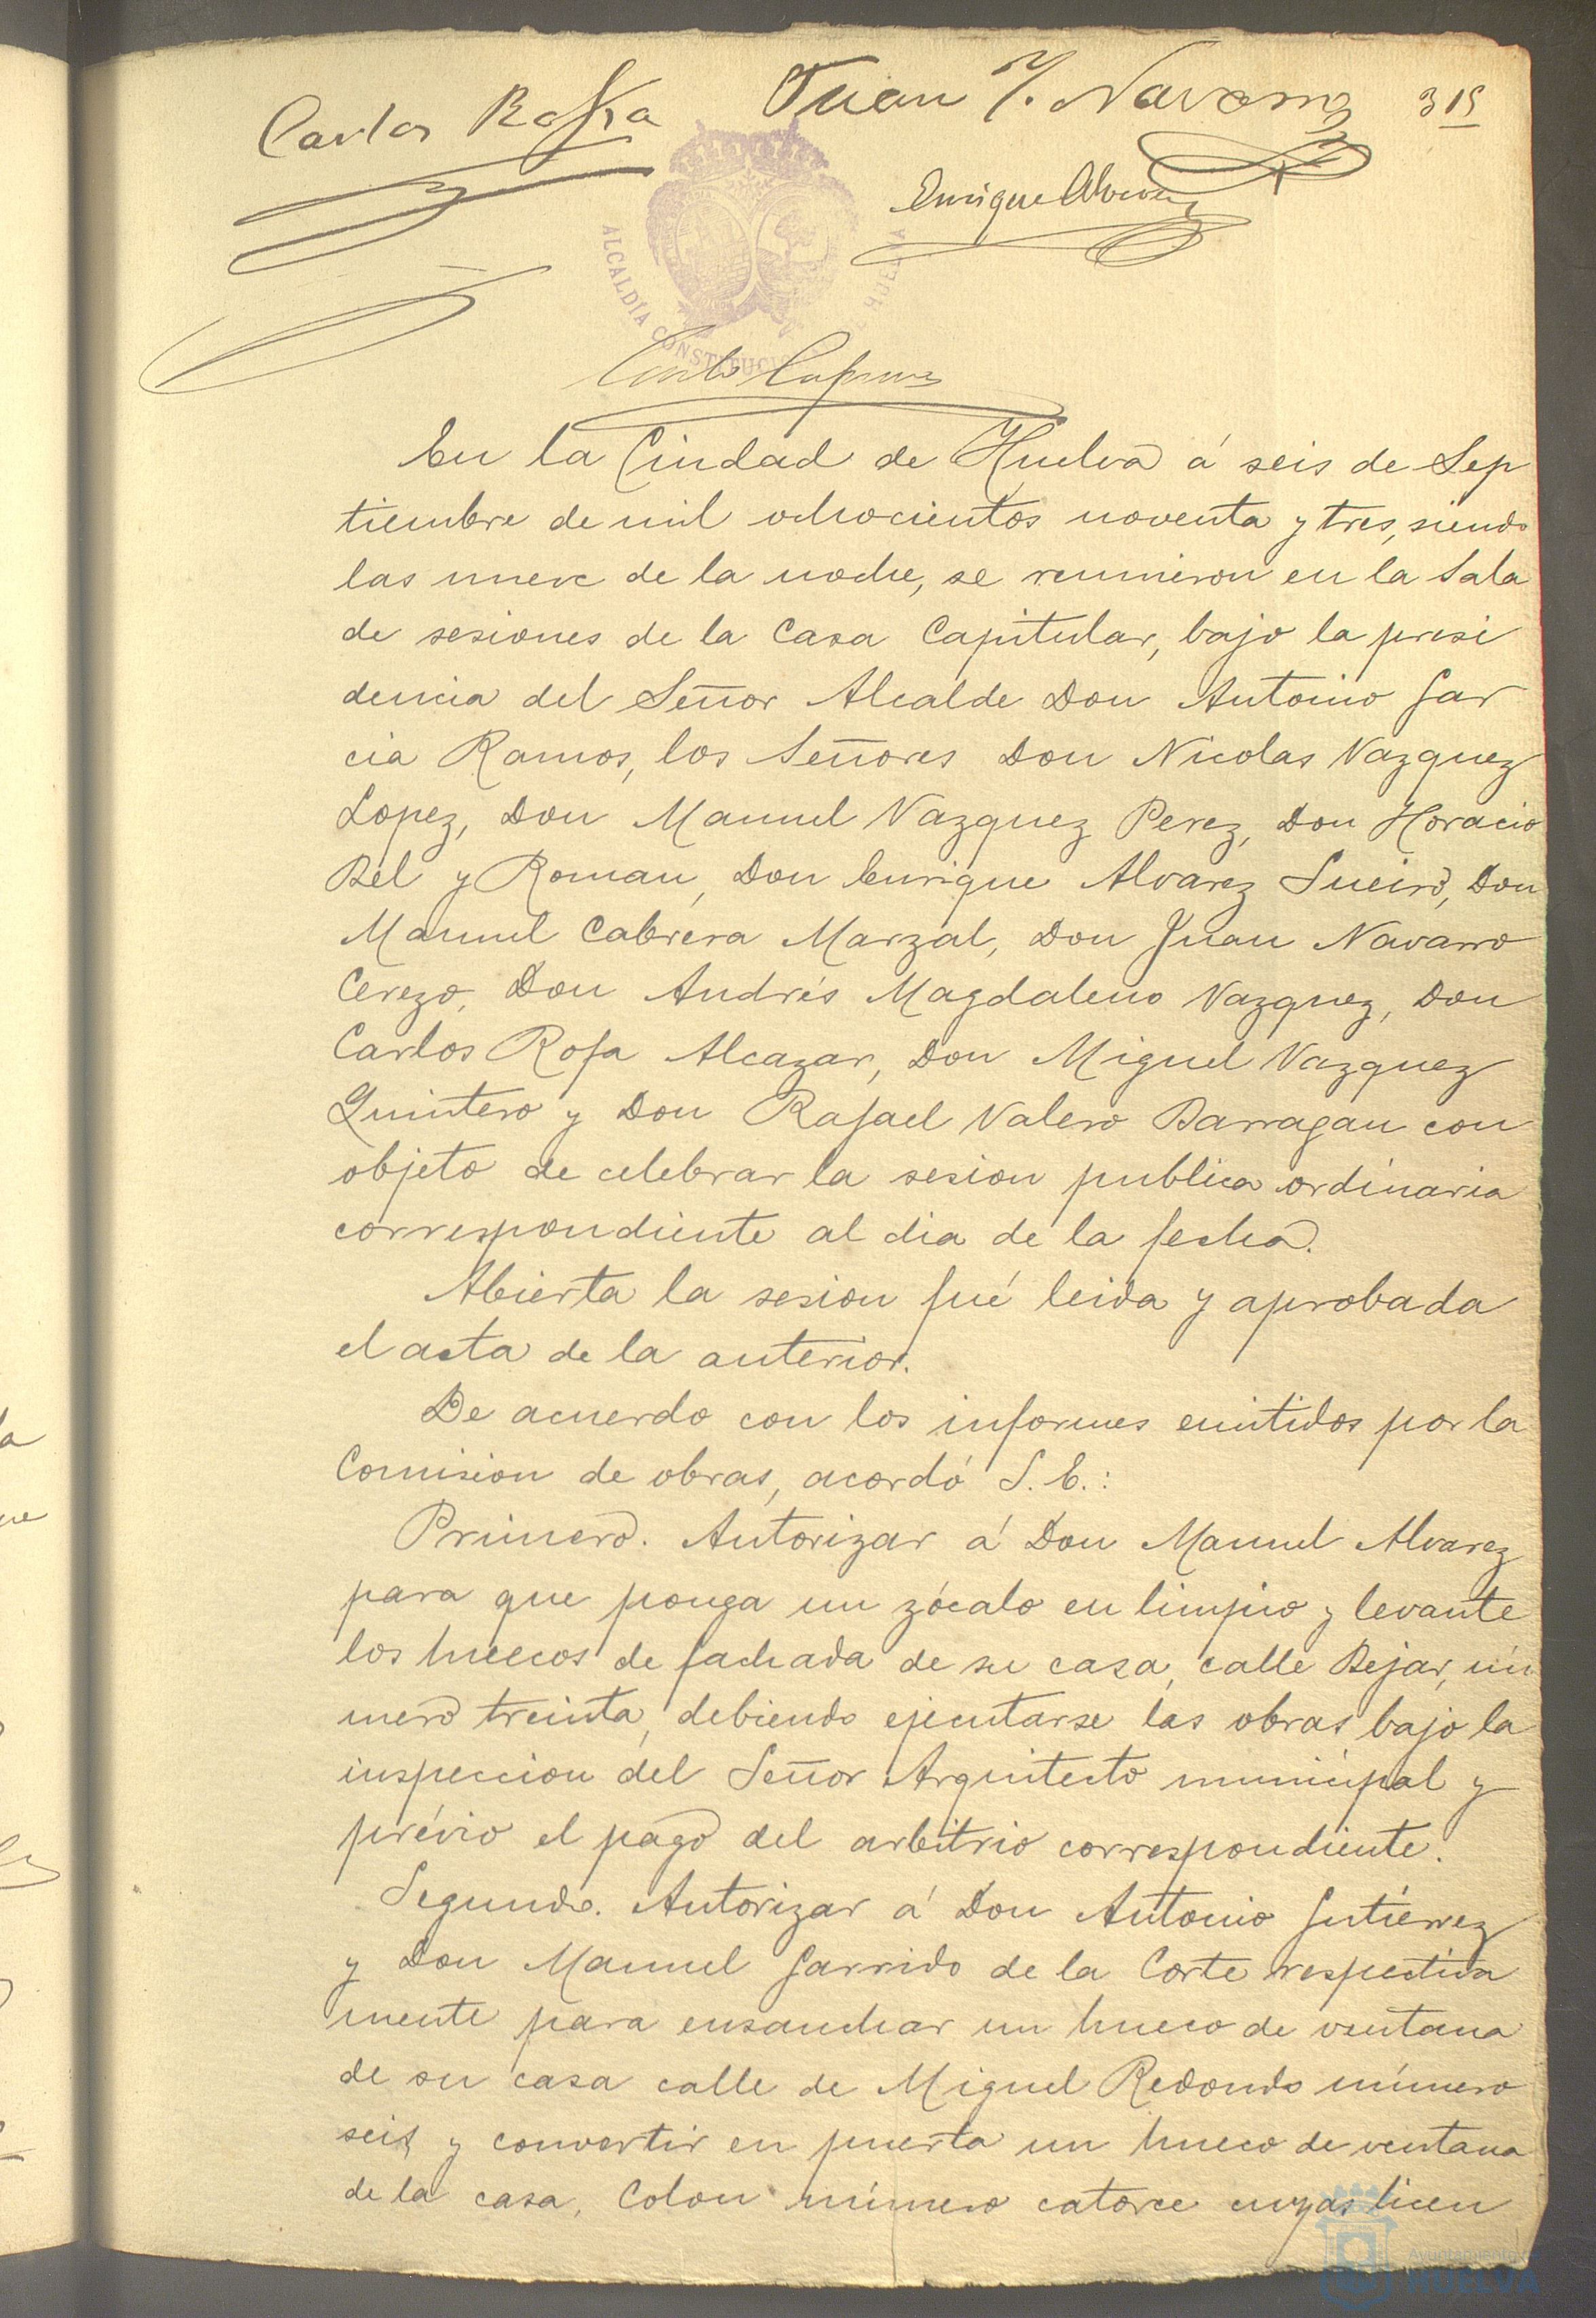 Carlos Rofa
Juan N. Navarro
315
Enrique Alvarez
ALCALDÍA CONSTITUCIONAL DE HUELVA
En la Ciudad de Huelva á seis de Sep
tiembre de mil ochocientos noventa y tres, siendo
las nueve de la noche, se reunieron en la Sala
de sesiones de la Casa Capitular, bajo la presi
dencia del Señor Alcalde Don Antonio Gar
cia Ramos, los Señores Don Nicolas Vazquez
Lopez, Don Manuel Vazquez Perez, Don Horacio
Bel y Roman, Don Enrique Alvarez Sueiro, Don
Manuel Cabrera Marzal, Don Juan Navarro
Cerezo, Don Andrés Magdaleno Vazquez, Don
Carlos Rofa Alcazar, Don Miguel Vazquez
Quintero y Don Rafael Valero Barragan con
objeto de celebrar la sesion publica ordinaria
correspondiente al dia de la fecha.
Abierta la sesion fué leida y aprobada
el acta de la anterior.
De acuerdo con los informes emitidos por la
Comision de obras, acordó S. E.:
Primero. Autorizar á Don Manuel Alvarez
para que ponga un zócalo en limpio y levante
los huecos de fachada de su casa, calle Bejar, nú
mero treinta, debiendo ejecutarse las obras bajo la
inspeccion del Señor Arquitecto municipal y
prévio el pago del arbitrio correspondiente.
Segundo. Autorizar á Don Antonio Gutiérrez
y Don Manuel Garrido de la Corte respectiva
mente para ensanchar un hueco de ventana
de su casa calle de Miguel Redondo número
seis y convertir en puerta un hueco de ventana
de la casa, Colon número catorce cuyas licen
Ayuntamiento
HUELVA